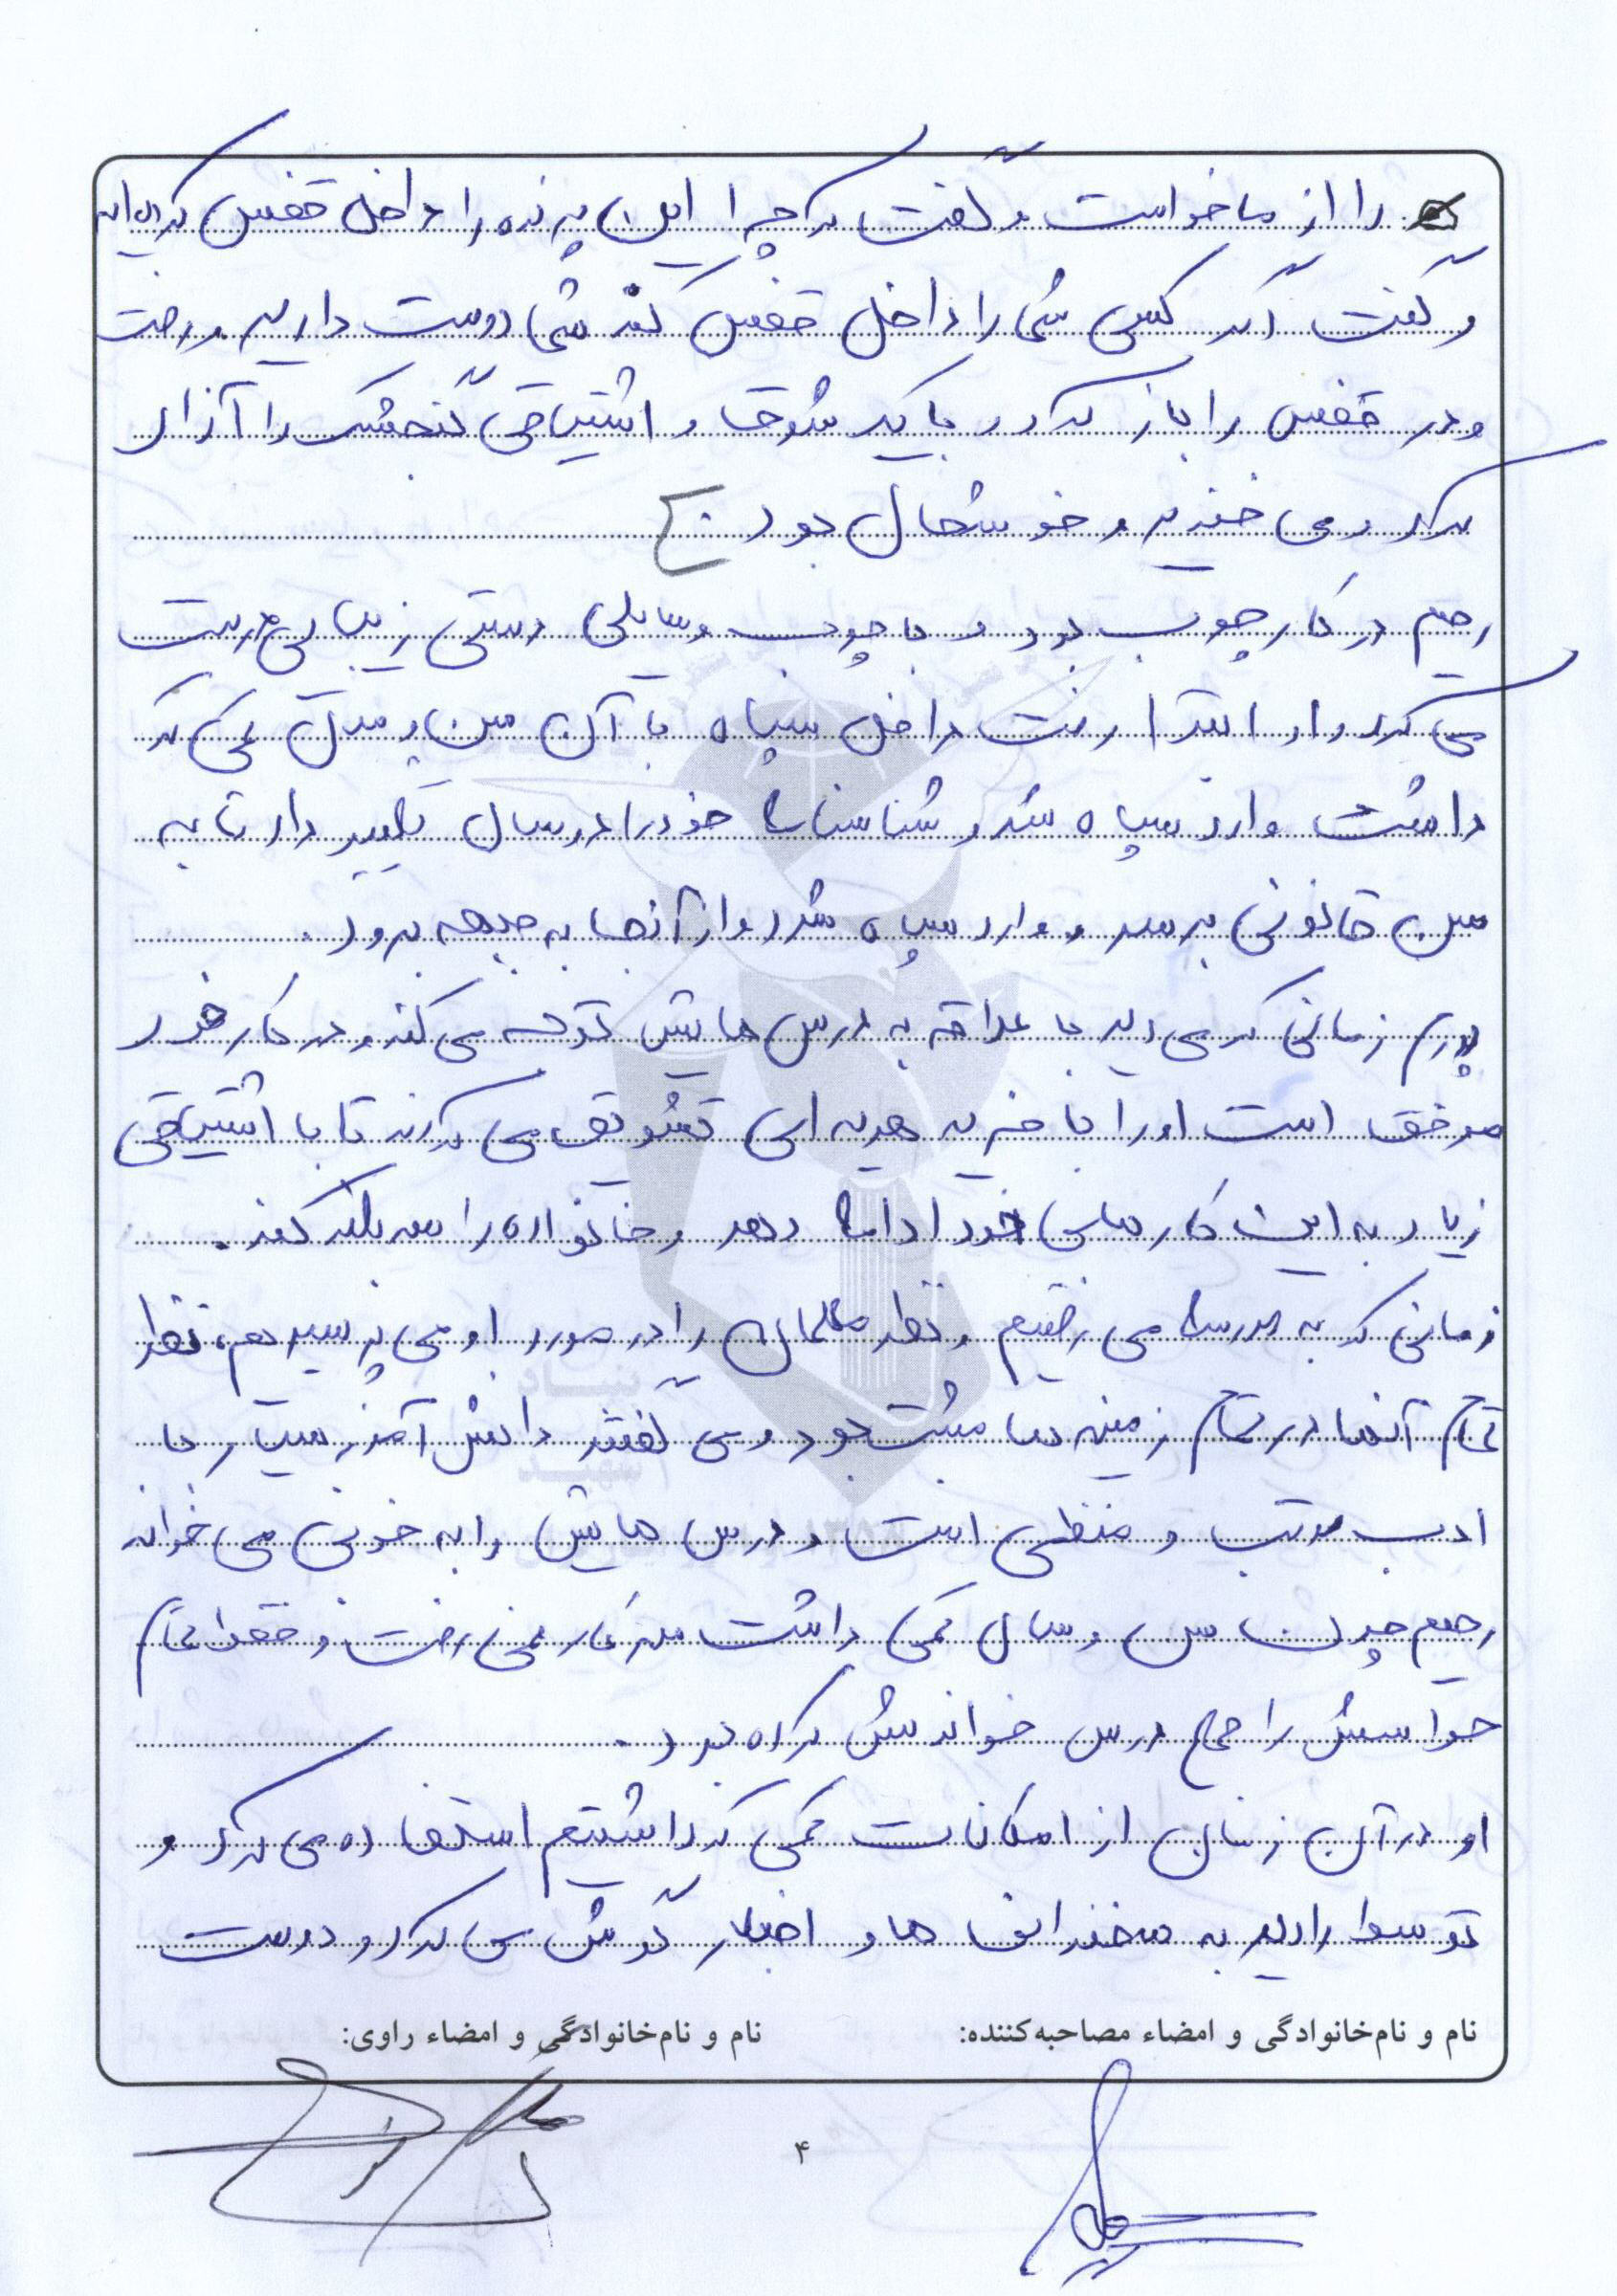 را از ما خواست و گفت که چرا این پرنده را داخل قفس کرده‌اید
و گفت اگر کسی شما را داخل قفس کند شما دوست دارید و رفت
و در قفس را باز کرد و با یک شوق و اشتیاقی گنجشک را آزاد
کرد و می خندید و خوشحال بود.
رحیم در کار چوب بود و با چوب وسایلی دستی زیبایی درست
می کرد و از ابتدا رفت داخل سپاه با آن سن و سال کمی که
داشت وارد سپاه شد و شناسنامه خود را در سال تغییر داد تا به
سن قانونی برسد و وارد سپاه شود و از آنجا به جبهه برود.
پدرم زمانی که می دید با علاقه به درس هایش توجه می کند و در کار خود
موفق است او را با خرید هدیه ای تشویق می کردند تا با اشتیاقی
زیاد به این کارهای خود ادامه دهد و خانواده را سربلند کند.
زمانی که به مدرسه می رفتیم و نظر معلمان را در مورد او می پرسیدیم، نظر
تمام آنها در تمام زمینه ها مثبت بود و می گفتند دانش آموز بسیار با
ادب مرتب و منظمی است و درس هایش را به خوبی می خواند
رحیم چون سن و سال کمی داشت سرکار نمی رفت و فقط تمام
حواسش را جمع درس خواندنش کرده بود.
او در آن زمان از امکانات کمی که داشتیم استفاده می کرد و
توسط رادیو به سخنرانی ها و اخبار گوش می کرد و دوست
نام و نام‌خانوادگی و امضاء مصاحبه‌کننده: نام و نام‌خانوادگی و امضاء راوی:
۴
بنیاد
شهید